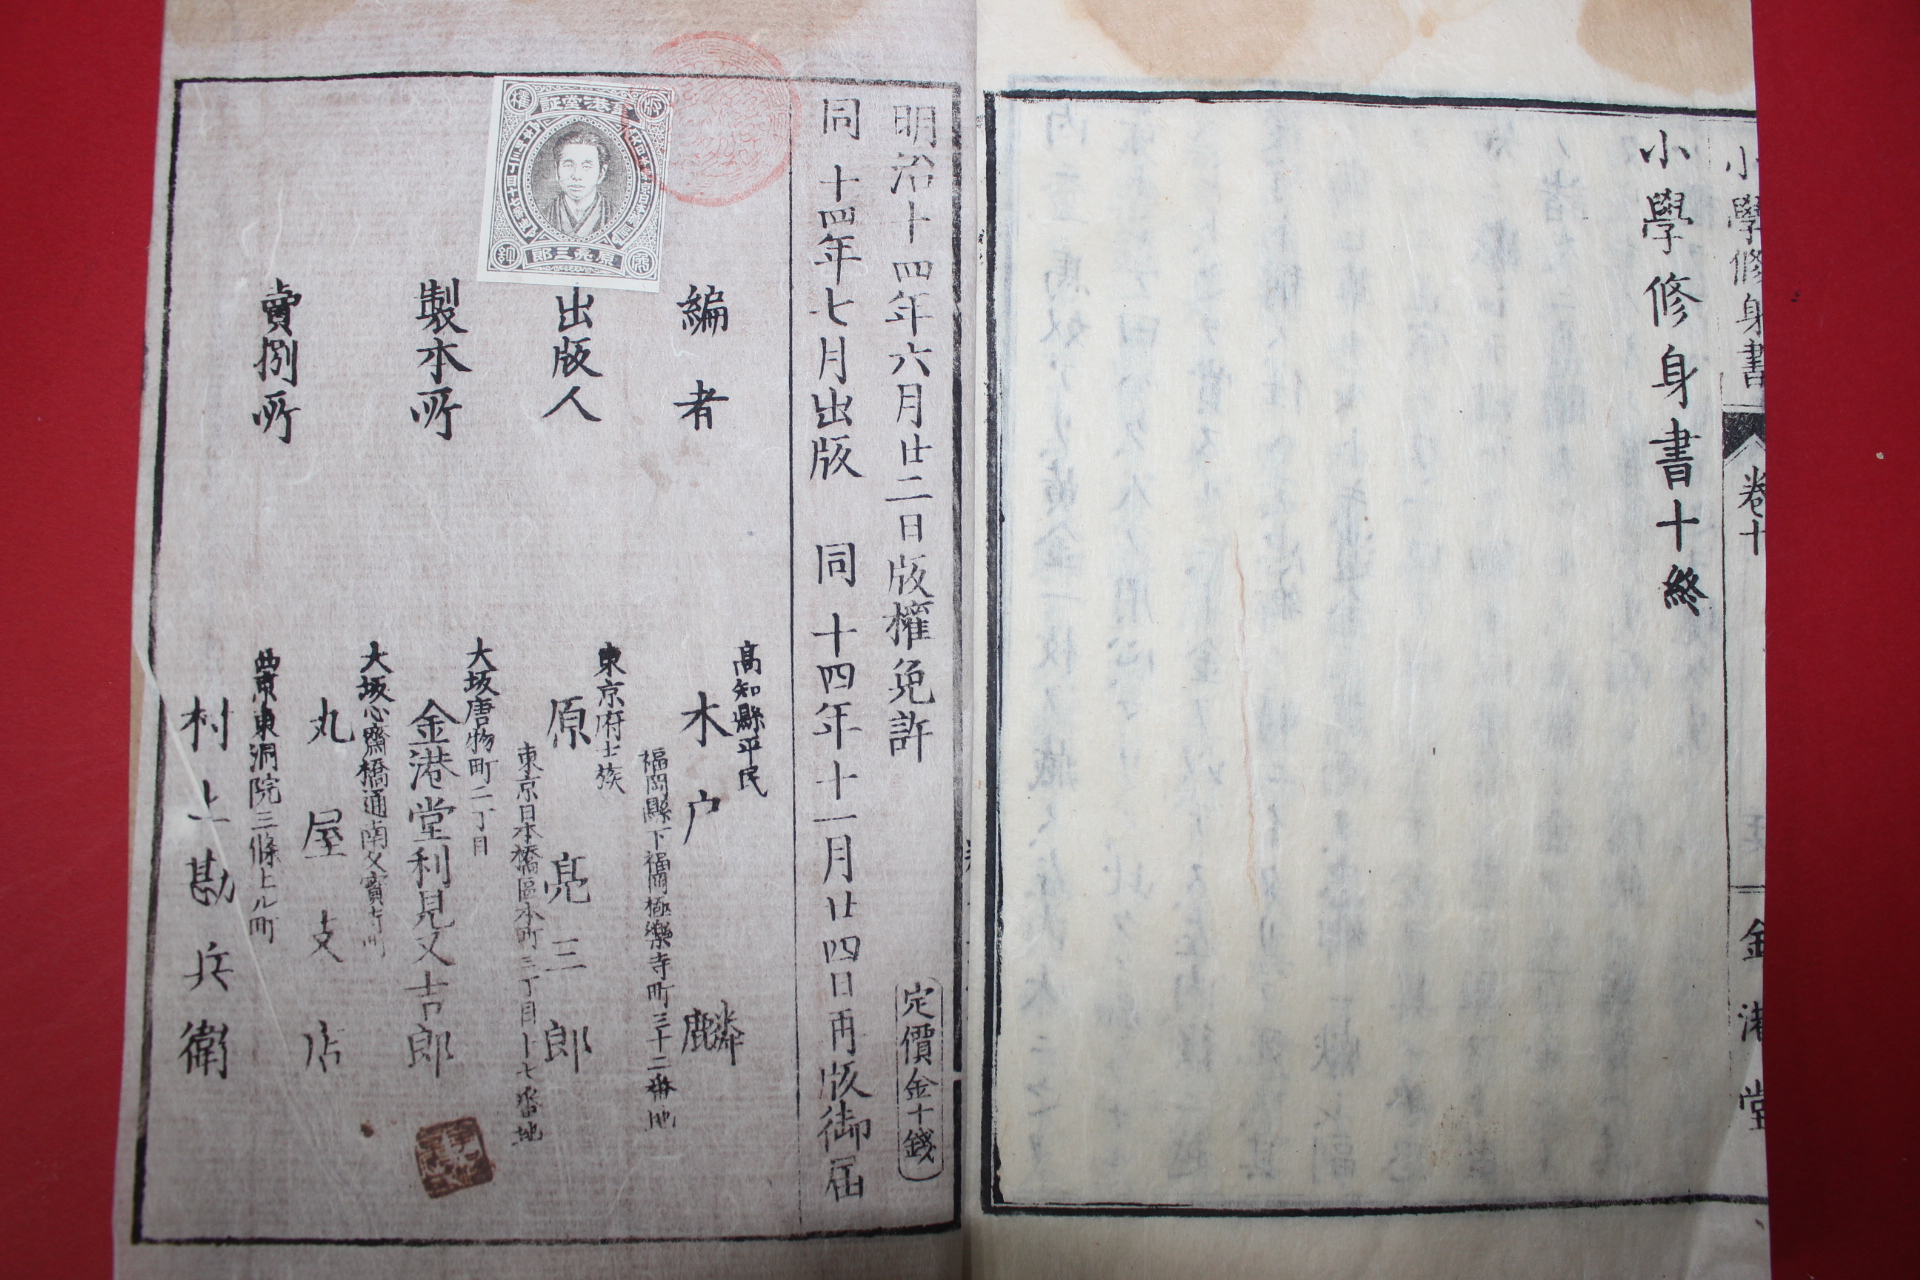 小學修身書
卷十
金港堂
小學修身書十終
明治十四年六月廿二日版權免許
定價金十錢
同十四年七月出版 同十四年十一月廿四日再版御届
編者
高知縣平民
木戸麟
福岡縣下福岡極樂寺町三十二番地
出版人
東京府士族
原亮三郎
東京日本橋區本町三丁目十七番地
製本所
大坂唐物町二丁目
金港堂利見又吉郎
賣捌所
大坂心齋橋通南久寶寺町
丸屋支店
西京東洞院三條上ル町
村上勘兵衛
金港堂証
原亮三郎